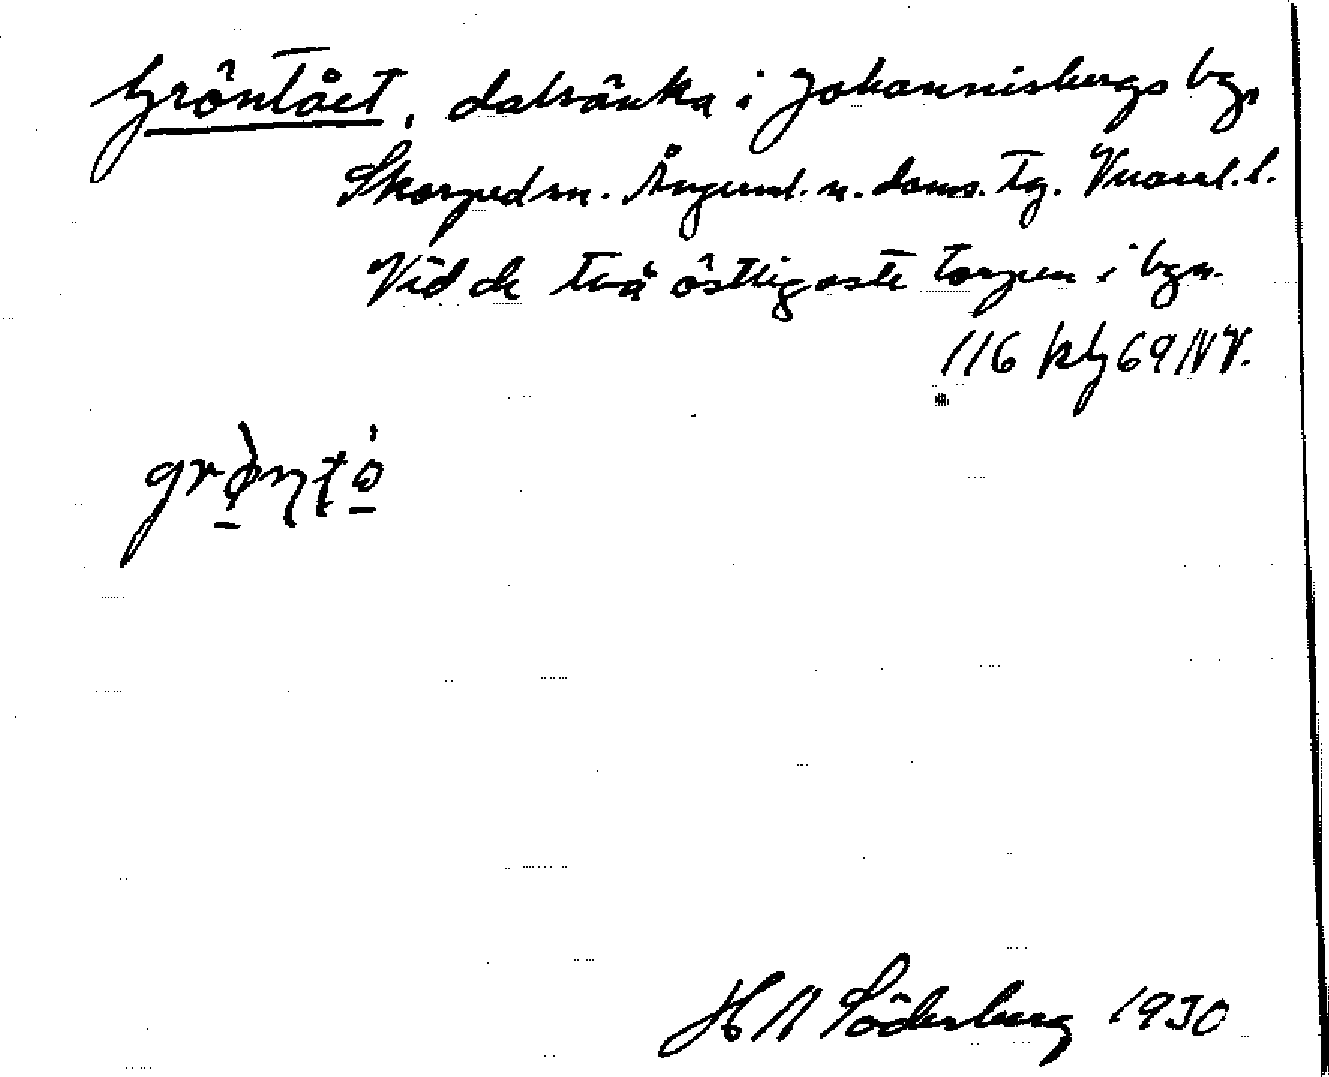 Gröntået, dalsänka i Johannisbergs by,
Skorped sn. Ångerml. n. doms. Tg. Vnorrl. l.
Vid de två östligaste torpen i byn.
116 kbl 69 NV.
grøntå
H N Söderberg 1930